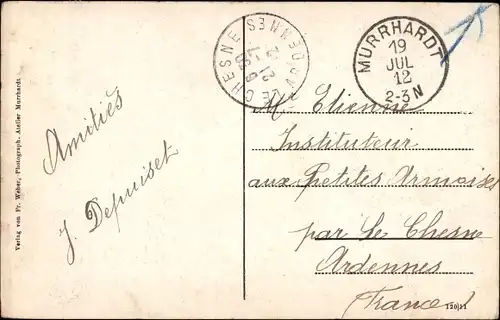 Verlag von Fr. Weber, Photograph. Atelier Murrhardt
Amitiés
J. Depuiset
LE CHESNE
ARDENNES
MURRHARDT
19
JUL
12
2-3 N
Mr Etienne
Instituteur
aux Petites Armoises
par Le Chesne
Ardennes
France
120|11